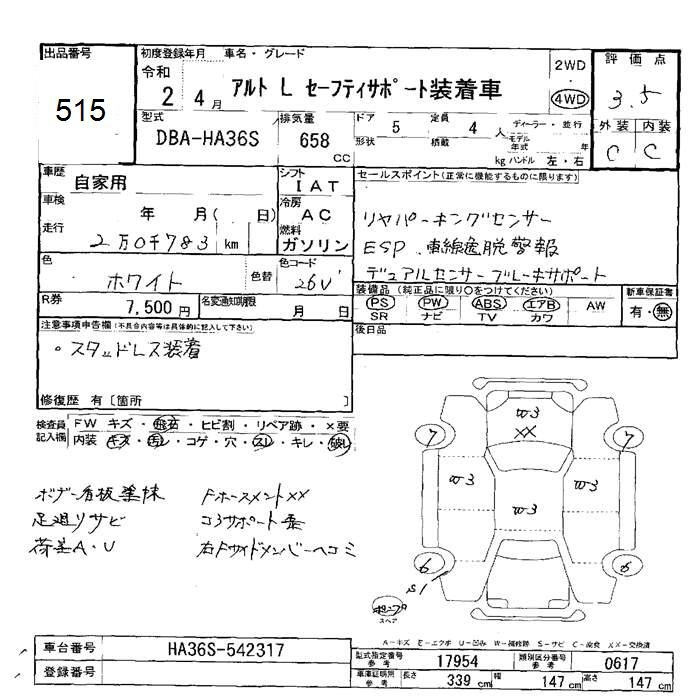 出品番号
515
初度登録年月 車名・グレード
令和
2 4月 アルト L セーフティサポート装着車
2WD
4WD
評価点
3.5
外装 内装
C C
型式
DBA-HA36S
排気量
658 CC
ドア 5 定員 4人 ディーラー・並行
形状 積載 kg モデル年式 年
ハンドル 左・右
車歴 自家用
シフト IAT
車検 年 月( 日)
冷房 AC
走行 2万0千783km
燃料 ガソリン
色 ホワイト 色替
色コード 26U
R券 7,500円 名変通知期限 月 日
セールスポイント(正常に機能するものに限ります)
リヤパーキングセンサー
ESP 車線逸脱警報
デュアルセンサーブレーキサポート
装備品(純正品に限り○をつけてください)
PS PW ABS エアB AW
SR ナビ TV カワ
新車保証書
有・無
後日品
注意事項申告欄(不具合内容等は具体的に記入して下さい)
・スタッドレス装着
修復歴 有〔箇所 〕
検査員記入欄
FW キズ・飛石・ヒビ割・リペア跡・×要
内装 キズ・汚レ・コゲ・穴・スレ・キレ・破レ
ボデー看板塗抹
足廻りサビ
荷差A・U
Fホースメント××
コアサポート
右Fサイドメンバーヘコミ
W3
××
7 7
W3 W3 W3
6 6
S1
スペア
A-キズ E-エクボ U-凹み W-補修跡 S-サビ C-腐食 ××-交換済
車台番号 HA36S-542317
登録番号
型式指定番号 参考 17954
類別区分番号 参考 0617
車庫証明用 参考 長さ 339cm 幅 147cm 高さ 147cm